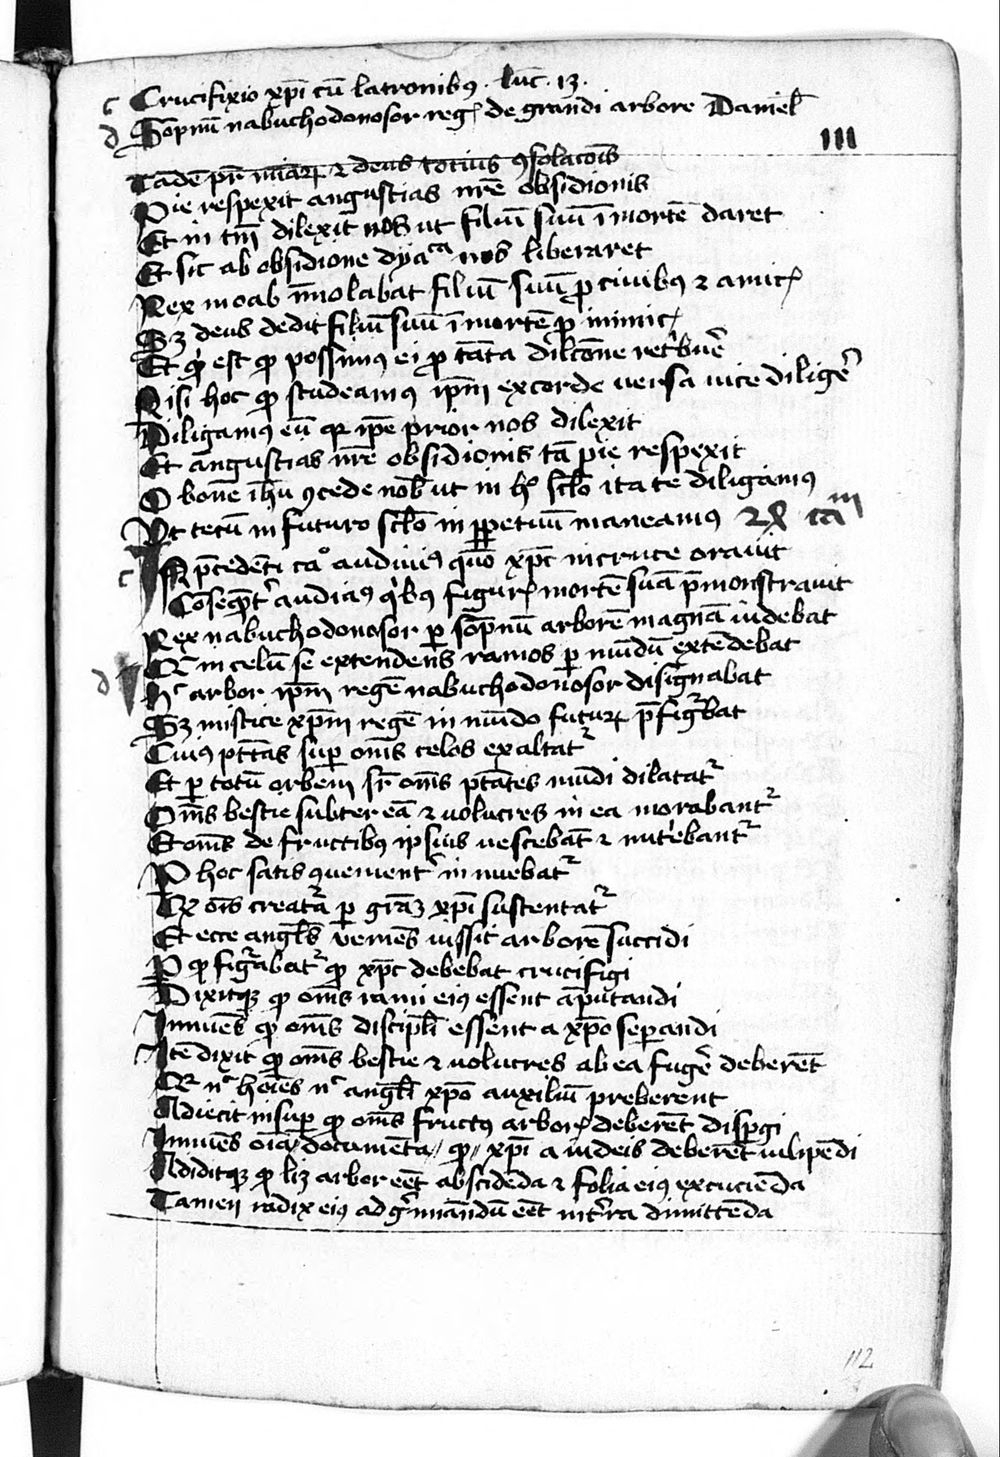 c Crucifixio xp̄i cū latronibꝰ · luc̄ · 13 ·
d Sōpnū nabuchodonosor regꝭ de grandi arbore Daniel̄
III
Tādē pr̄ mīaꝝ ⁊ deus totius ꝯsolacōis
Pie respexit angustias nr̄e obsidionis
Et in tm̄ dilexit nos ut filiū suū ī mortē daret
Et sic ab obsidione dyaᶜᵃ nos liberaret
Rex moab īmolabat filiū suū ꝓ ciuibꝰ ⁊ amicꝭ
Sꝫ deus dedit filiū suū ī mortē ꝓ inimicꝭ
Et qͥ est qꝫ possimꝰ ei ꝓ tāta dilcōne ret'buē
Nisi hoc ꝙ studeamꝰ ip̄m ex corde uersa uice diligē
Diligamꝰ eū qꝛ ip̄e prior nos dilexit
Et angustias nr̄e obsidionis tā pie respexit
O bone ih̄u ꝯcede nob̄ ut in hͦ sc̄lo ita te diligamꝰ
Vt tecū in futuro sc̄lo in ꝑpetuū maneamꝰ
c In p̄cedēti caͦ audiuimꝰ quō xp̄c in cruce orauit
Cōseqn̄t' audiamꝰ qͥbꝰ figurꝭ mortē suā p̄monstrauit
Rex nabuchodonosor ꝑ sōpnū arborē magnā uidebat
Q̄ in celū se extendens ramos ꝑ mūdū extēdebat
d Hͨ arbor ip̄m regē nabuchodonosor designabat
Sꝫ mistice xp̄m regē in mūdo futuꝝ p̄figͣbat
Cuius ptt̄as suꝑ om̄s celos exaltatᷣ
Et ꝑ totū orbem sr̄ om̄s ptātes mūdi dilatatᷣ
Om̄s bestie subter eā ⁊ uolucres in ea morabantᷣ
Et om̄s de fructibꝰ ipsius uescebāt ⁊ nut'ebantᷣ
P hoc satis ꝯuenient' innuebatᷣ
Qꝫ oīs creatͣa ꝑ grāꝫ xp̄i sustentatᷣ
Et ecce angl̄s veniēs iussit arborē succidi
P qꝫ figͣabatᷣ ꝙ xp̄c debebat crucifigi
Dixitqꝫ ꝙ om̄s rami eiꝰ essent āputandi
Innuēs ꝙ om̄s discipl̄i essent a xp̄o seꝑandi
Itē dixit ꝙ om̄s bestie ⁊ uolucres ab ea fugē deberēt
Q̄ nͨ hoīes nͨ angl̄i xp̄o auxiliū preberent
Adiecit insuꝑ ꝙ om̄s fructꝰ arborꝭ deberēt disꝑgi
Innuēs oīa documēta ꝙ xp̄i a iudeis deberēt uilipēdi
Addiditqꝫ ꝙ lꝫ arbor eēt abscidēda ⁊ folia eiꝰ excuciēda
Tamen radix eiꝰ ad g'minādū eēt in t'ra dimittēda
112